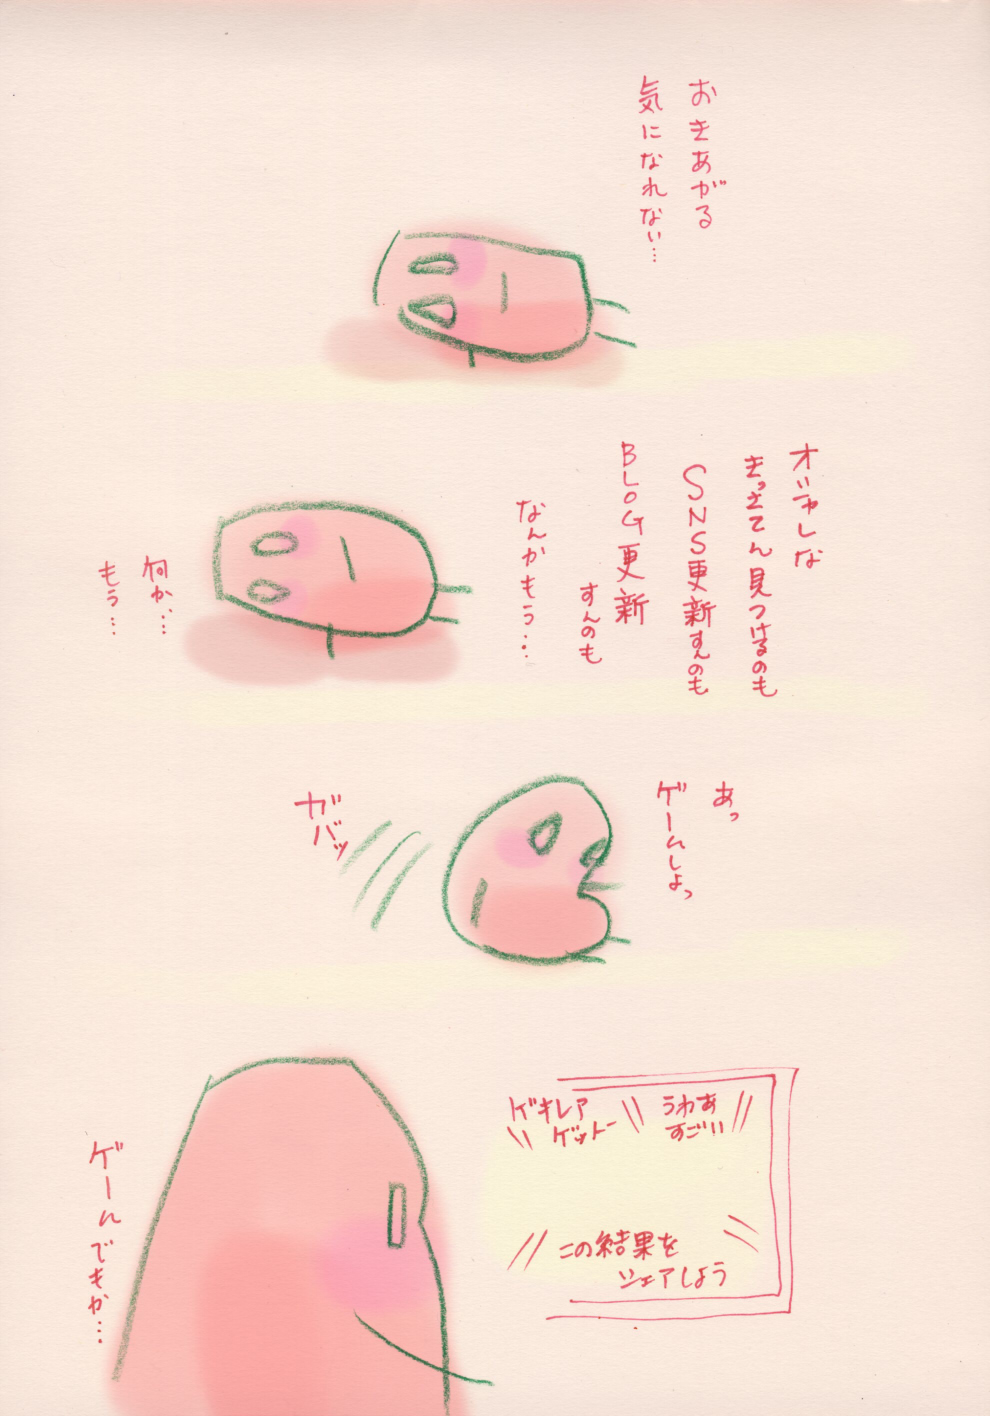 おきあがる
気になれない…
オシャレな
きっさてん見つけるのも
SNS更新すんのも
BLOG更新
すんのも
なんかもう…
何か…
もう…
あっ
ゲームしよっ
ガバッ
ゲキレア
ゲットー
うわあ
すごい!!
この結果を
シェアしよう
ゲームでもか…